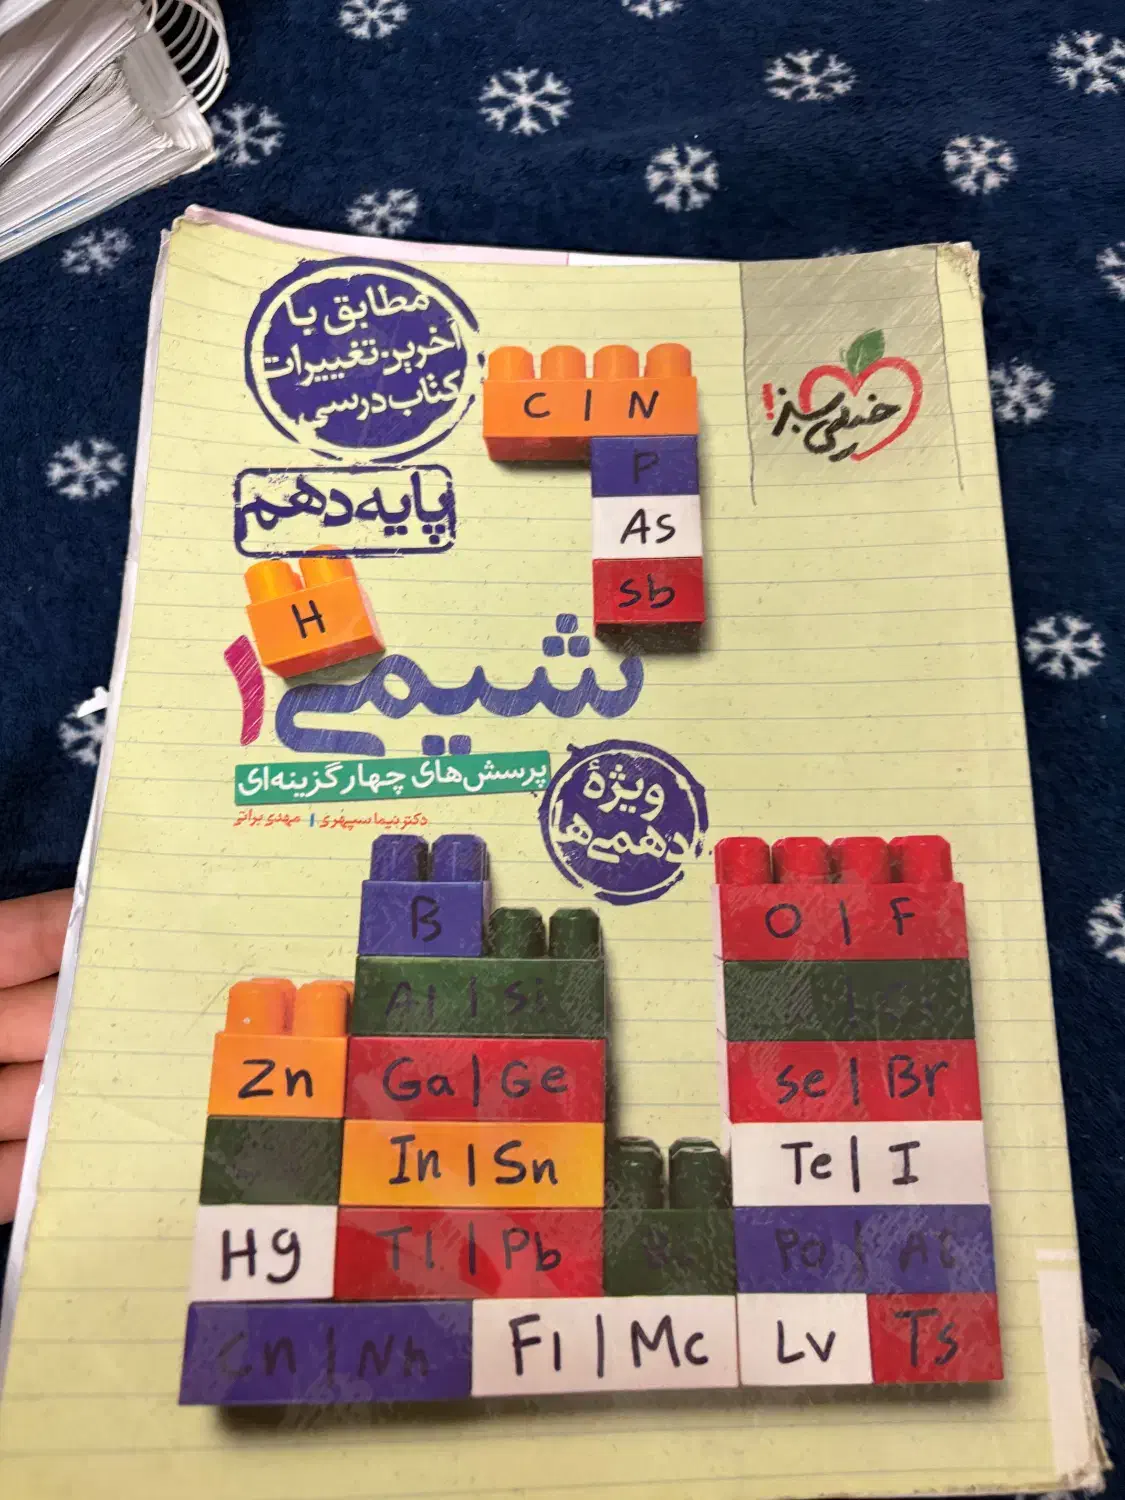 مطابق با
آخرین تغییرات
کتاب درسی
خیلی سبز
C | N
P
As
Sb
پایه دهم
H
شیمی ۱
پرسش‌های چهارگزینه‌ای
دکتر نیما سپهری | مهدی براتی
ویژهٔ
دهمی‌ها
B
O | F
Al | Si
Zn
Ga | Ge
Se | Br
In | Sn
Te | I
Hg
Tl | Pb
Po | At
Cn | Nh
Fl | Mc
Lv
Ts